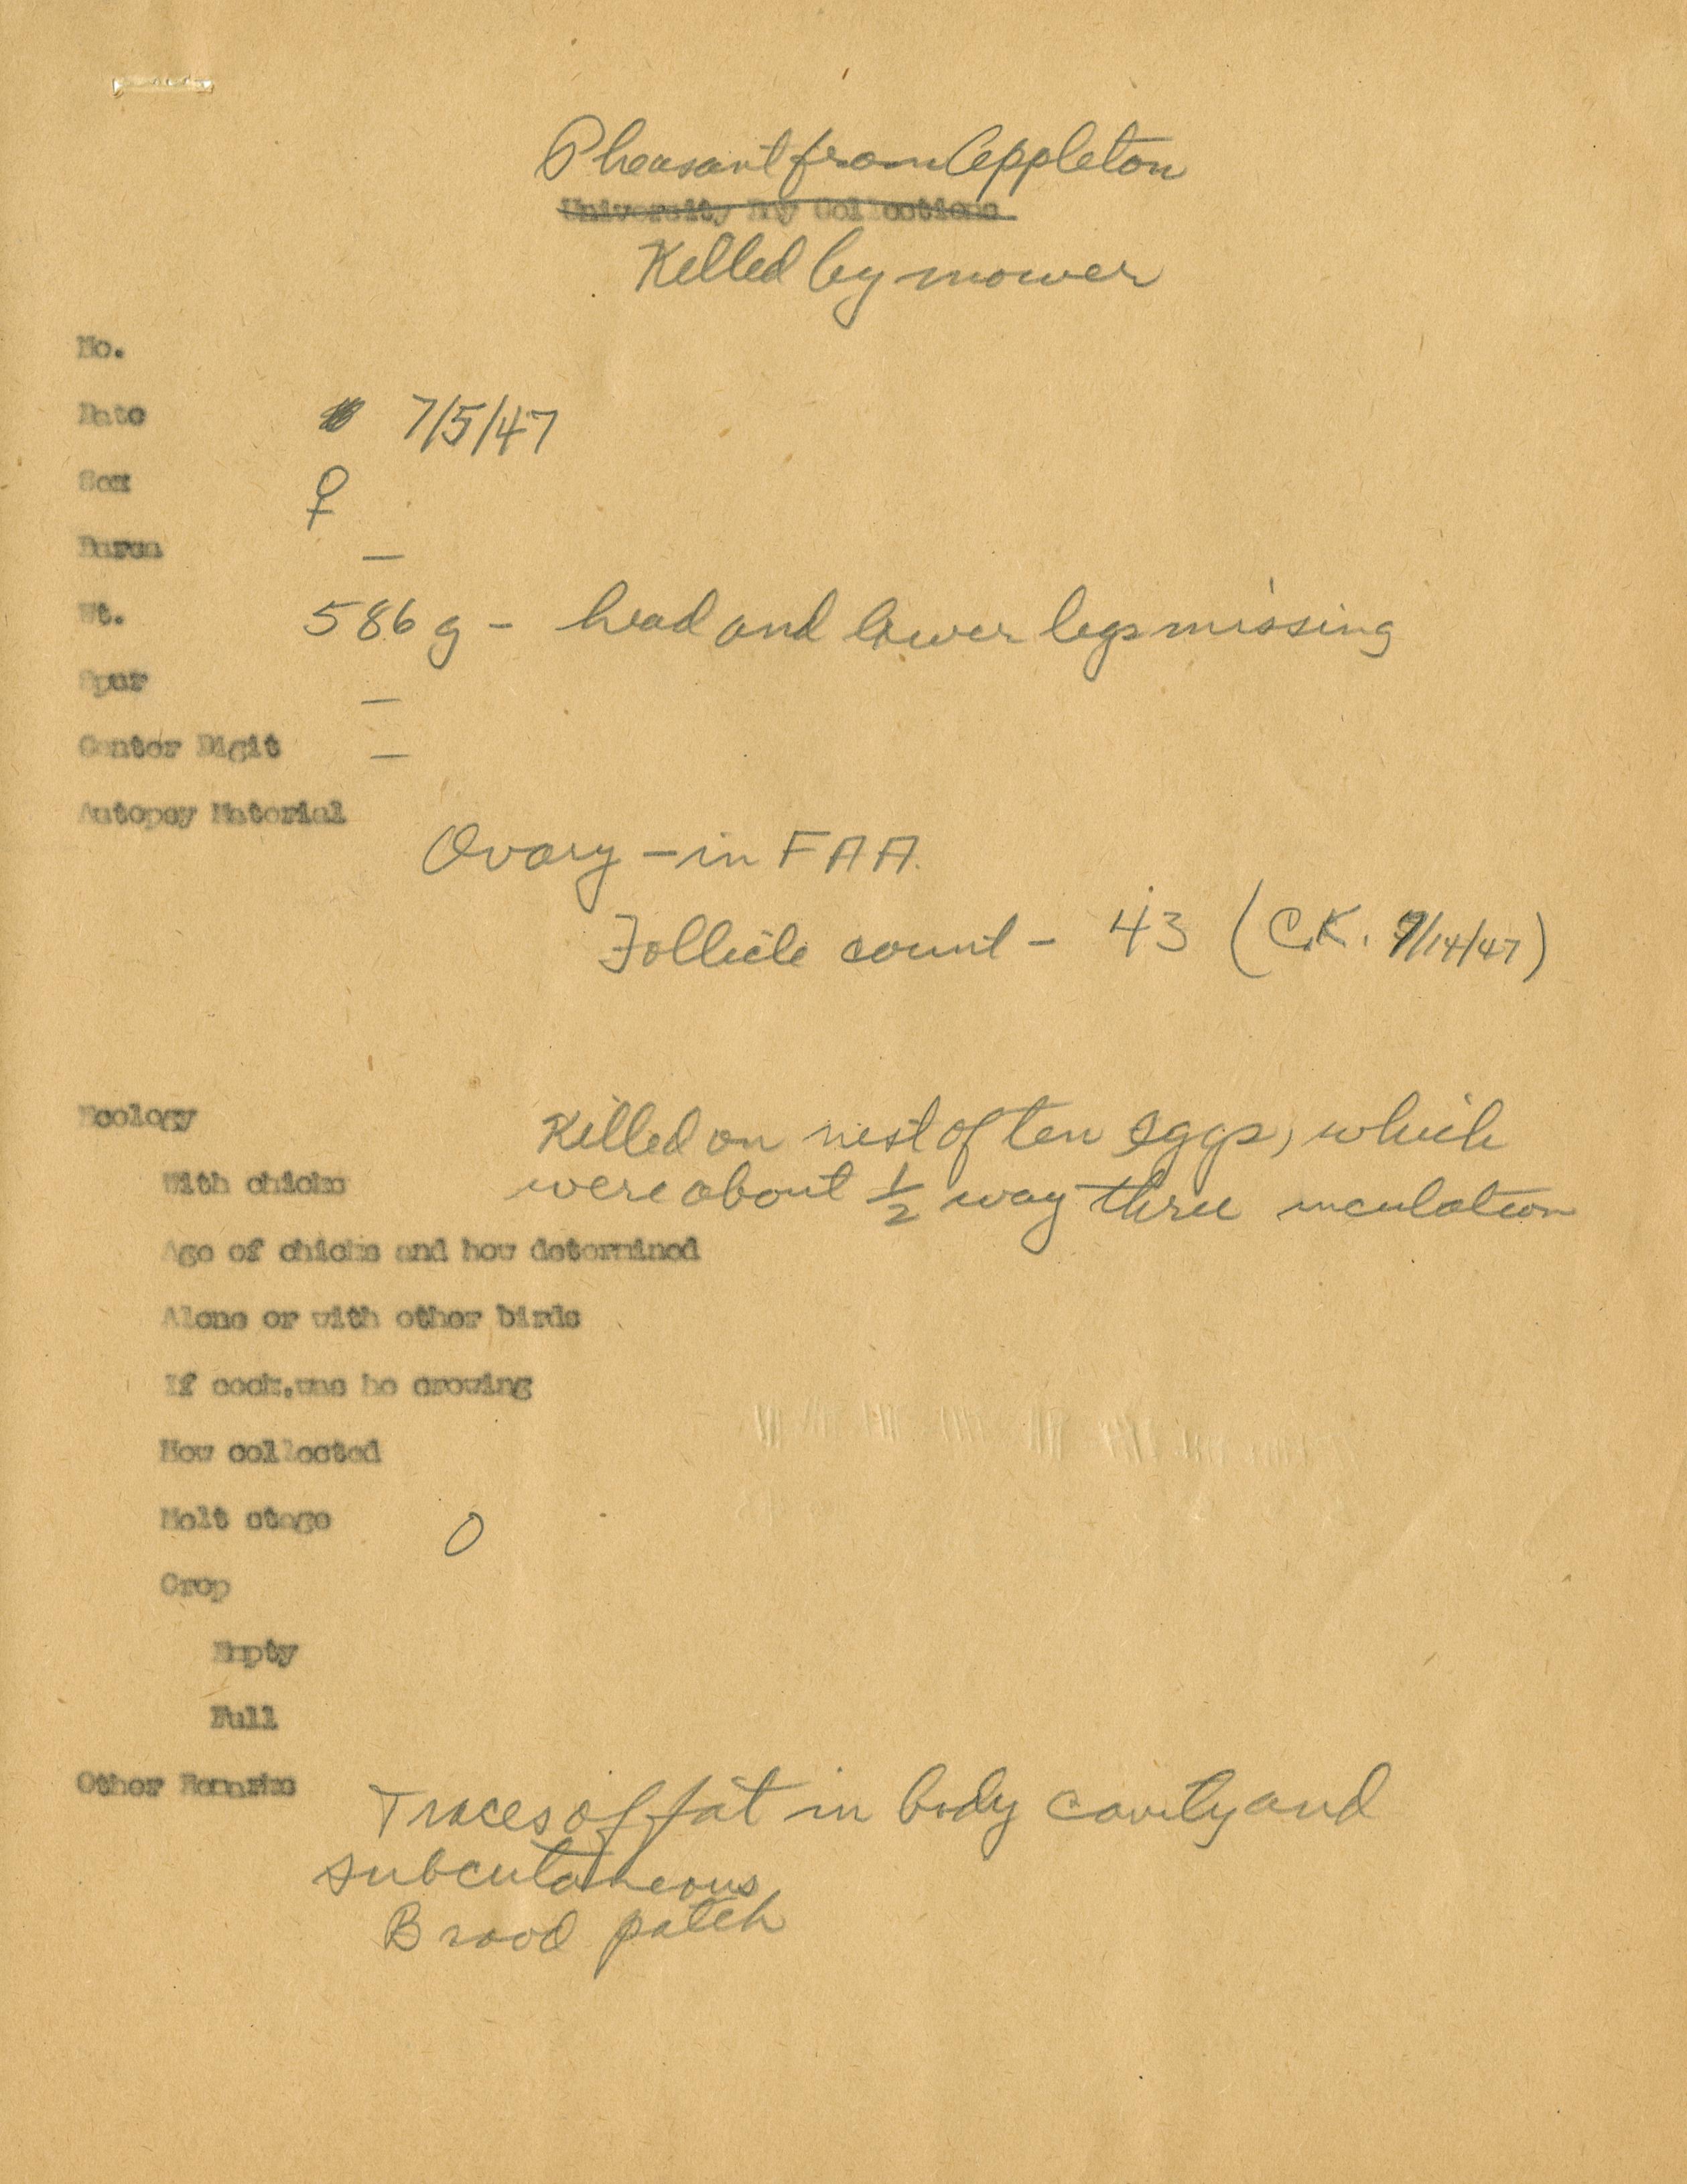 Pheasant from Appleton
University Bay Collections
Killed by mower
No.
Date 7/5/47
Sex ♀
Bursa —
Wt. 586 g - head and lower legs missing
Spur —
Center Digit —
Autopsy Material
Ovary - in FAA.
Follicle count - 43 (C.K. 9/14/47)
Ecology Killed on nest of ten eggs, which
With chicks were about 1/2 way thru inculation
Age of chicks and how determined
Alone or with other birds
If cock, was he crowing
How collected
Molt stage 0
Crop
Empty
Full
Other Remarks Traces of fat in body cavity and
subcutaneous
Brood patch